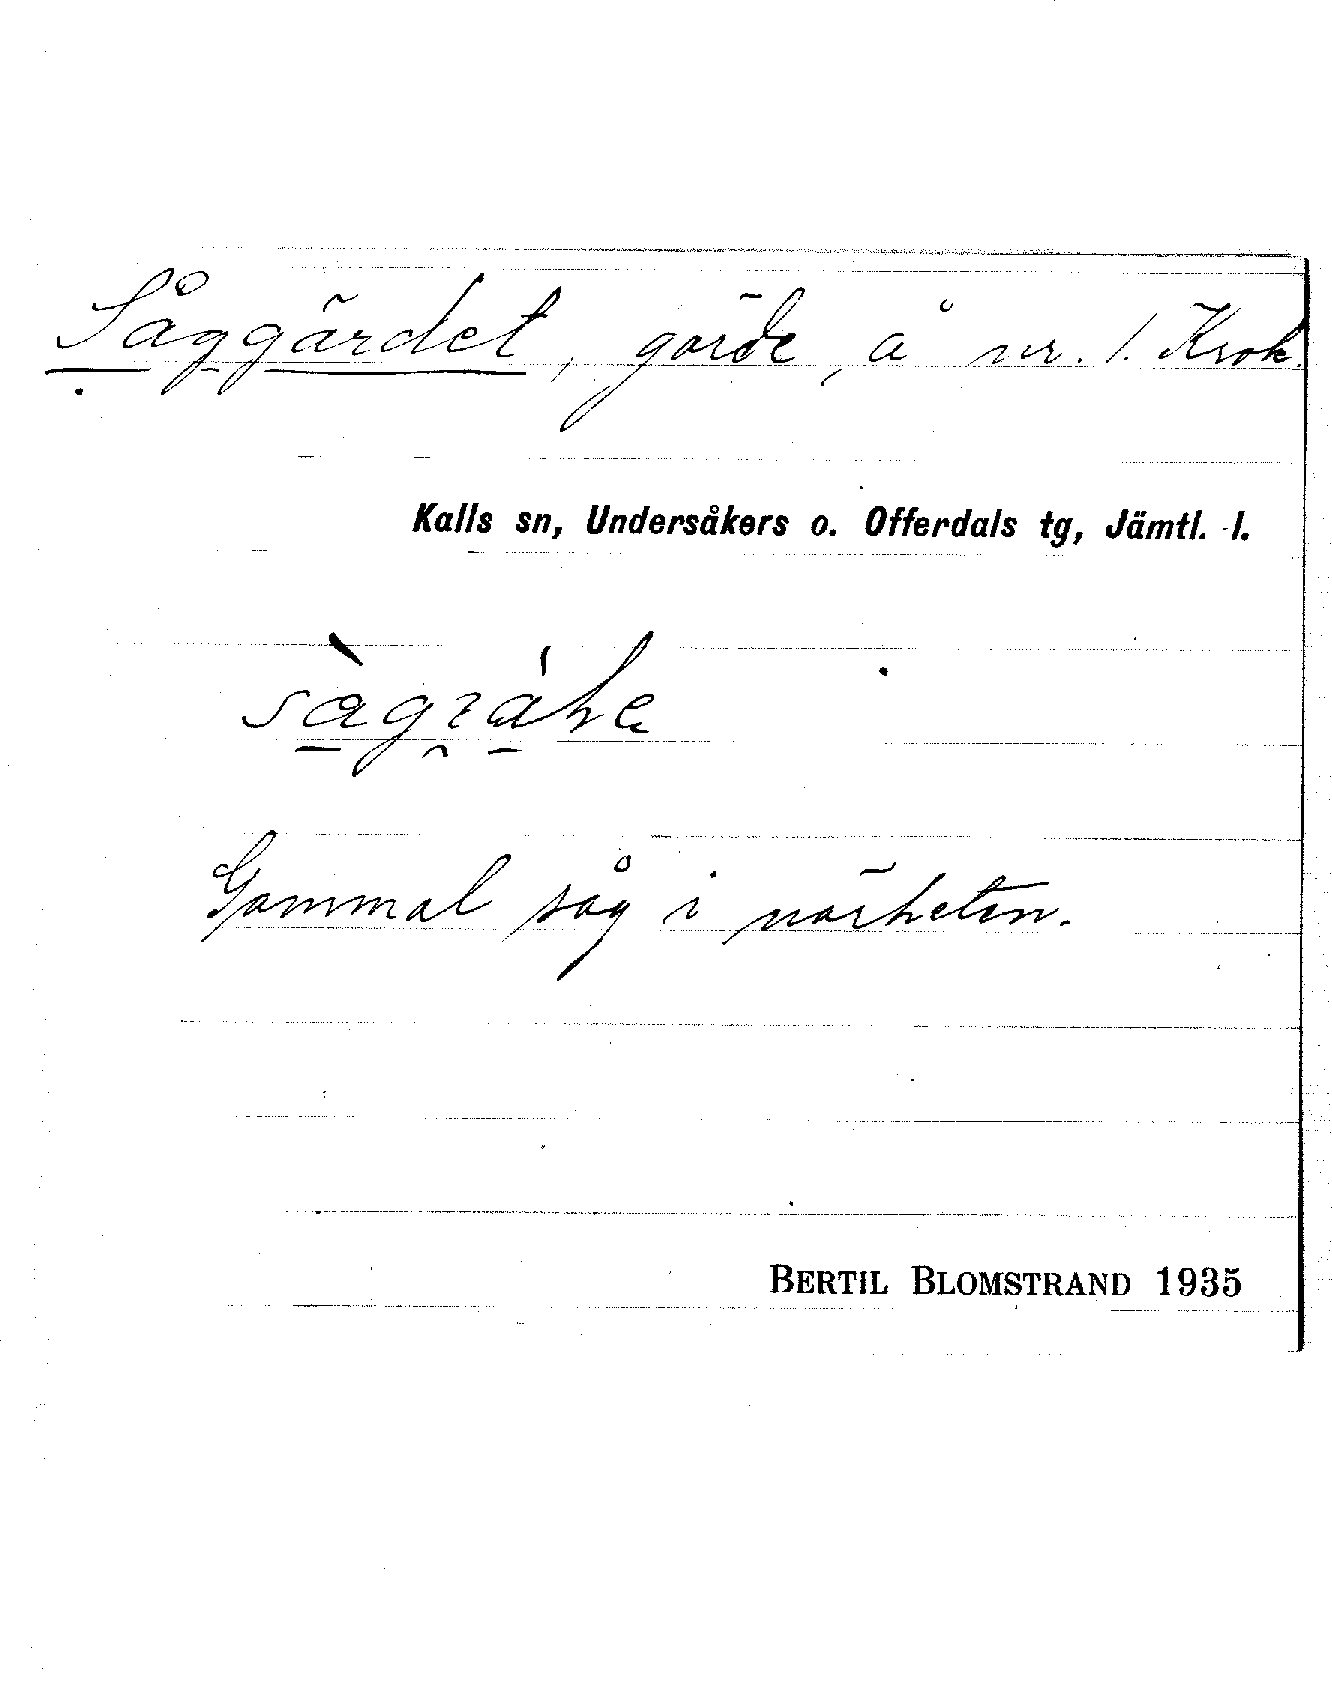 Såggärdet, gärde, å nr. 1. Krok.
Kalls sn, Undersåkers o. Offerdals tg, Jämtl. l.
Gammal såg i närheten.
BERTIL BLOMSTRAND 1935